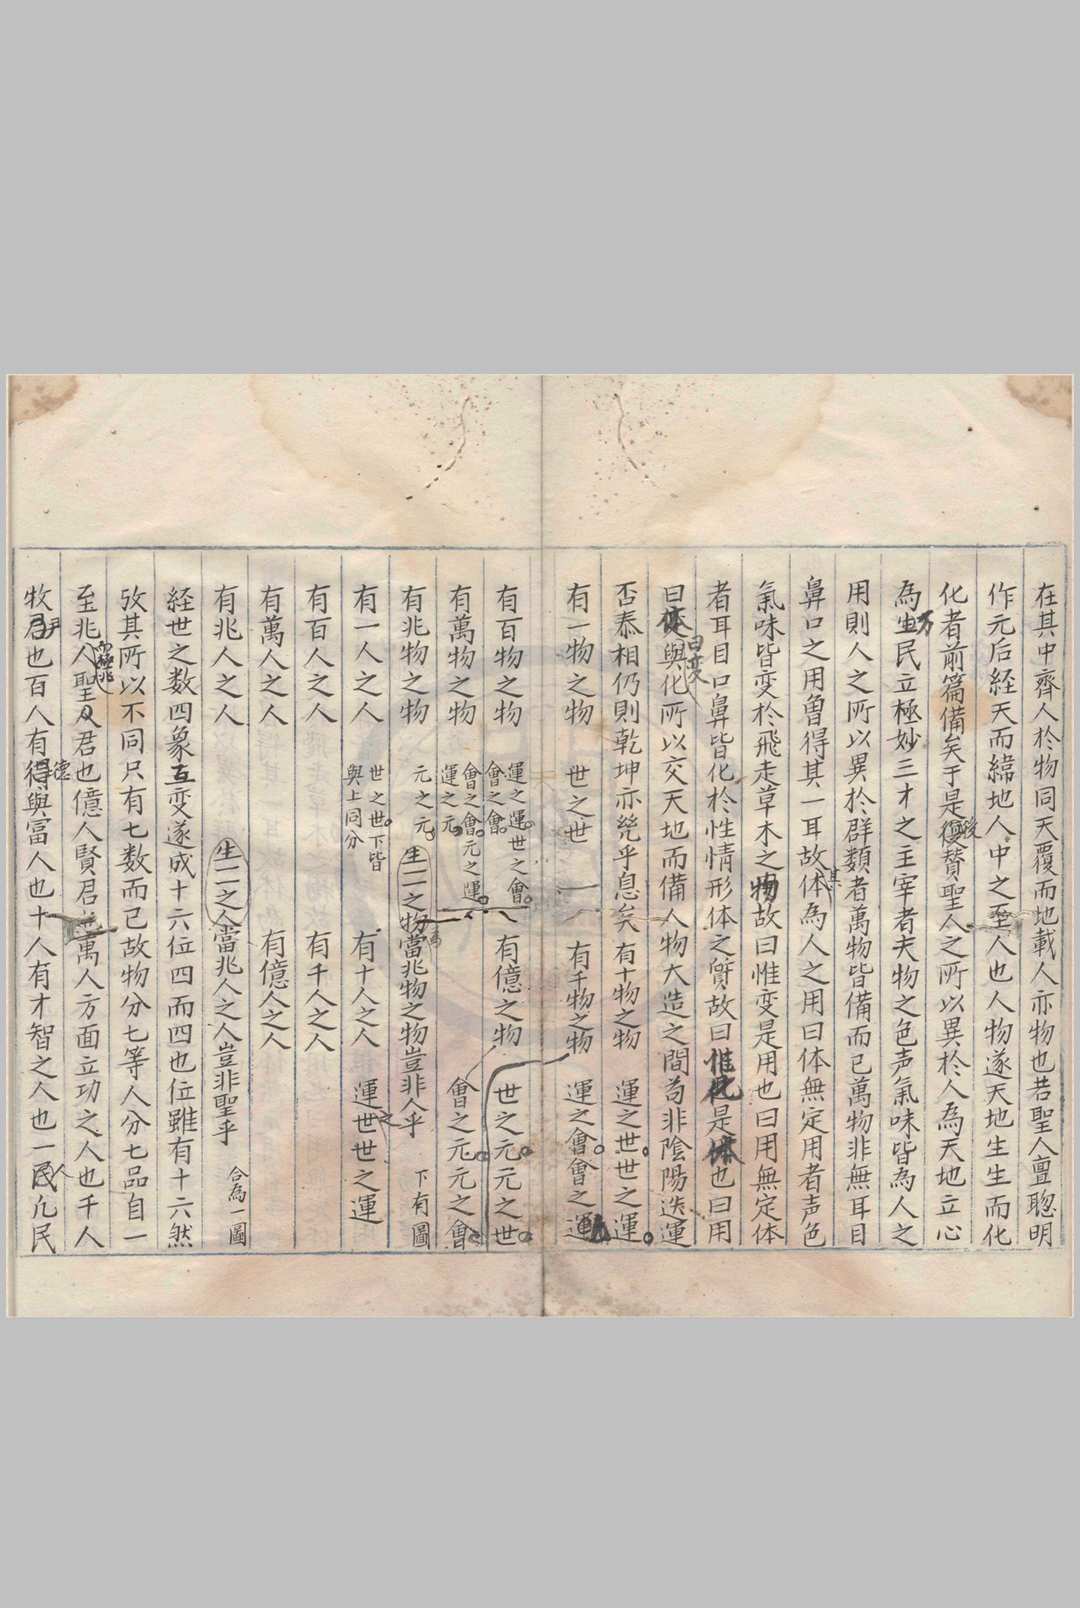 在其中齊人於物同天覆而地載人亦物也若聖人亶聰明
作元后経天而緯地人中之至人也人物遂天地生生而化
化者前篇備矣于是後賛聖人之所以異於人為天地立心
為万民立極妙三才之主宰者夫物之色声氣味皆為人之
用則人之所以異於群類者萬物皆備而已萬物非無耳目
鼻口之用魯得其一耳故体為人之用曰体無定用者声色
氣味皆変於飛走草木之物故曰惟変是用也曰用無定体
者耳目口鼻皆化於性情形体之質故曰惟化是体也曰用
曰体曰変與化所以交天地而備人物大造之間苟非陰陽迭運
否泰相仍則乾坤亦㡬乎息矣有十物之物 運之世世之運
有一物之物 世之世 有千物之物 運之會會之運
有百物之物 運之運世之會會之會 有億之物 世之元元之世
有萬物之物 會之會元之運運之元 會之元元之會
有兆物之物 元之元 生一一之物當兆物之物豈非人乎 下有圖
有一人之人 世之世下皆與上同分 有十人之人 運之世世之運
有百人之人 有千人之人
有萬人之人 有億人之人
有兆人之人 生一一之人當兆人之人豈非聖乎 合為一圖
経世之数四象互変遂成十六位四而四也位雖有十六然
攷其所以不同只有七数而已故物分七等人分七品自一
至兆人聖人君也億人賢君也萬人方面立功之人也千人
牧尹也百人有德與富人也十人有才智之人也一人凡民